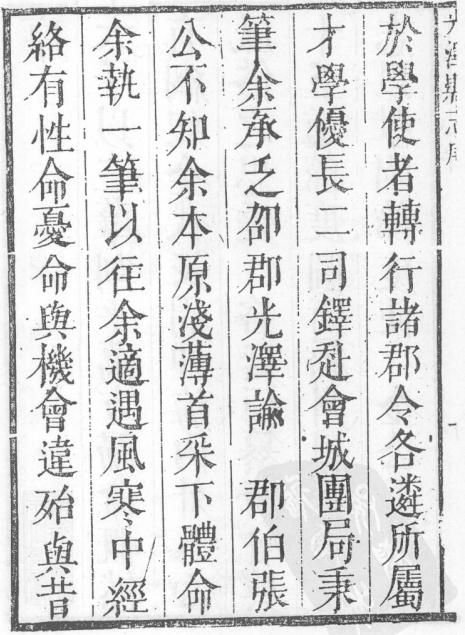 於學使者轉行諸郡令各遴所屬
才學優長二司鐸赴會城團局秉
筆余承乏邵郡光澤諭　郡伯張
公不知余本原淺薄首采下體命
余執一筆以往余適遇風寒中經
絡有性命憂命與機會違殆與昔